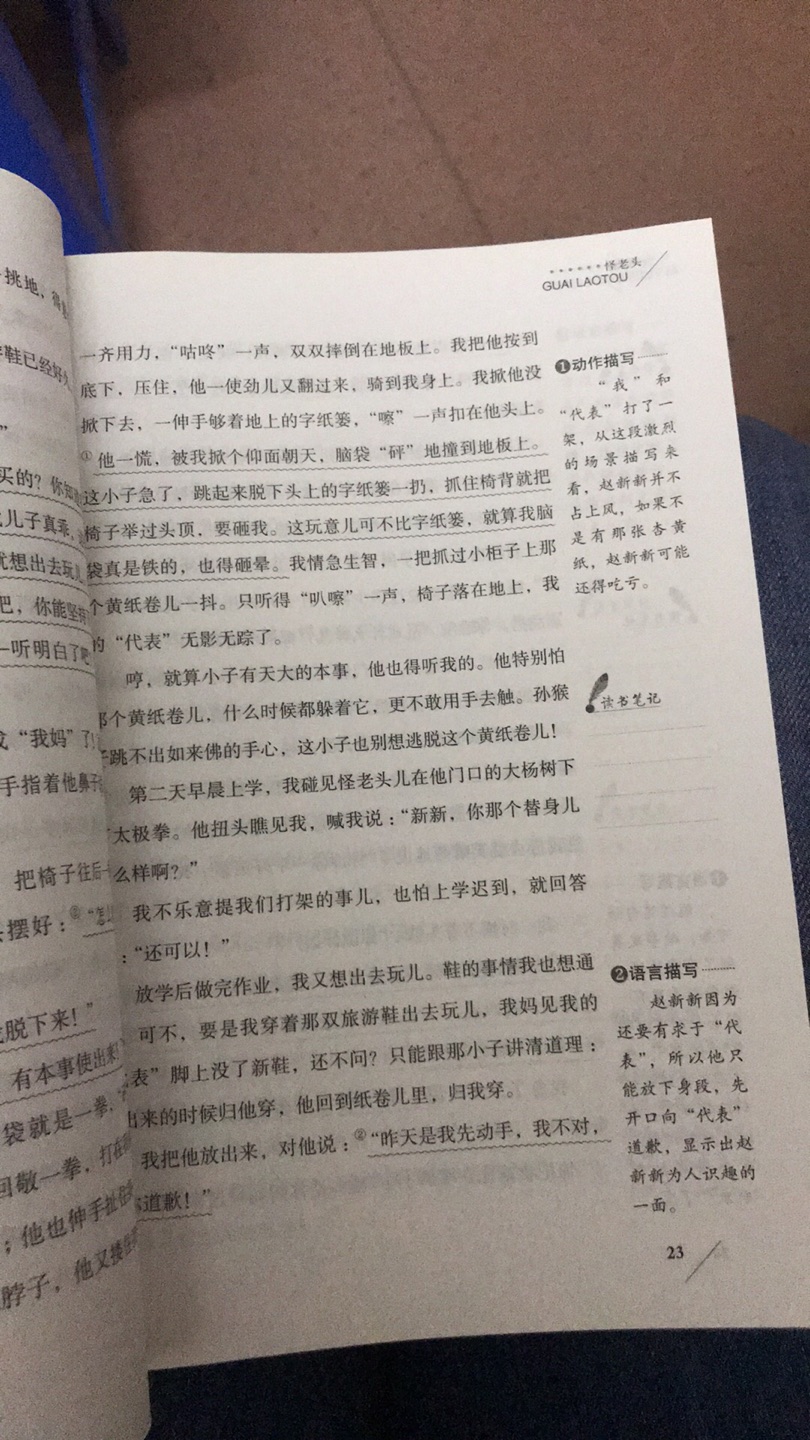 挑地，
鞋已经好久
”
买的？你知
儿子真乖，
就想出去玩儿
吧，你能坚持
一听明白了吧
成“我妈”了！
手指着他鼻子
把椅子往后一
摆好：②“怎
脱下来！”
有本事使出来
袋就是一拳，
回敬一拳，打在
；他也伸手扯
脖子，他又搂住
怪老头
GUAI LAOTOU
一齐用力，“咕咚”一声，双双摔倒在地板上。我把他按到
底下，压住，他一使劲儿又翻过来，骑到我身上。我掀他没
掀下去，一伸手够着地上的字纸篓，“嚓”一声扣在他头上。
①他一慌，被我掀个仰面朝天，脑袋“砰”地撞到地板上。
这小子急了，跳起来脱下头上的字纸篓一扔，抓住椅背就把
椅子举过头顶，要砸我。这玩意儿可不比字纸篓，就算我脑
袋真是铁的，也得砸晕。我情急生智，一把抓过小柜子上那
个黄纸卷儿一抖。只听得“叭嚓”一声，椅子落在地上，我
的“代表”无影无踪了。
哼，就算小子有天大的本事，他也得听我的。他特别怕
那个黄纸卷儿，什么时候都躲着它，更不敢用手去触。孙猴
子跳不出如来佛的手心，这小子也别想逃脱这个黄纸卷儿！
第二天早晨上学，我碰见怪老头儿在他门口的大杨树下
太极拳。他扭头瞧见我，喊我说：“新新，你那个替身儿
么样啊？”
我不乐意提我们打架的事儿，也怕上学迟到，就回答
：“还可以！”
放学后做完作业，我又想出去玩儿。鞋的事情我也想通
可不，要是我穿着那双旅游鞋出去玩儿，我妈见我的
表”脚上没了新鞋，还不问？只能跟那小子讲清道理：
出来的时候归他穿，他回到纸卷儿里，归我穿。
我把他放出来，对他说：②“昨天是我先动手，我不对，
道歉！”
❶动作描写
“我”和
“代表”打了一
架，从这段激烈
的场景描写来
看，赵新新并不
占上风，如果不
是有那张杏黄
纸，赵新新可能
还得吃亏。
读书笔记
❷语言描写
赵新新因为
还要有求于“代
表”，所以他只
能放下身段，先
开口向“代表”
道歉，显示出赵
新新为人识趣的
一面。
23